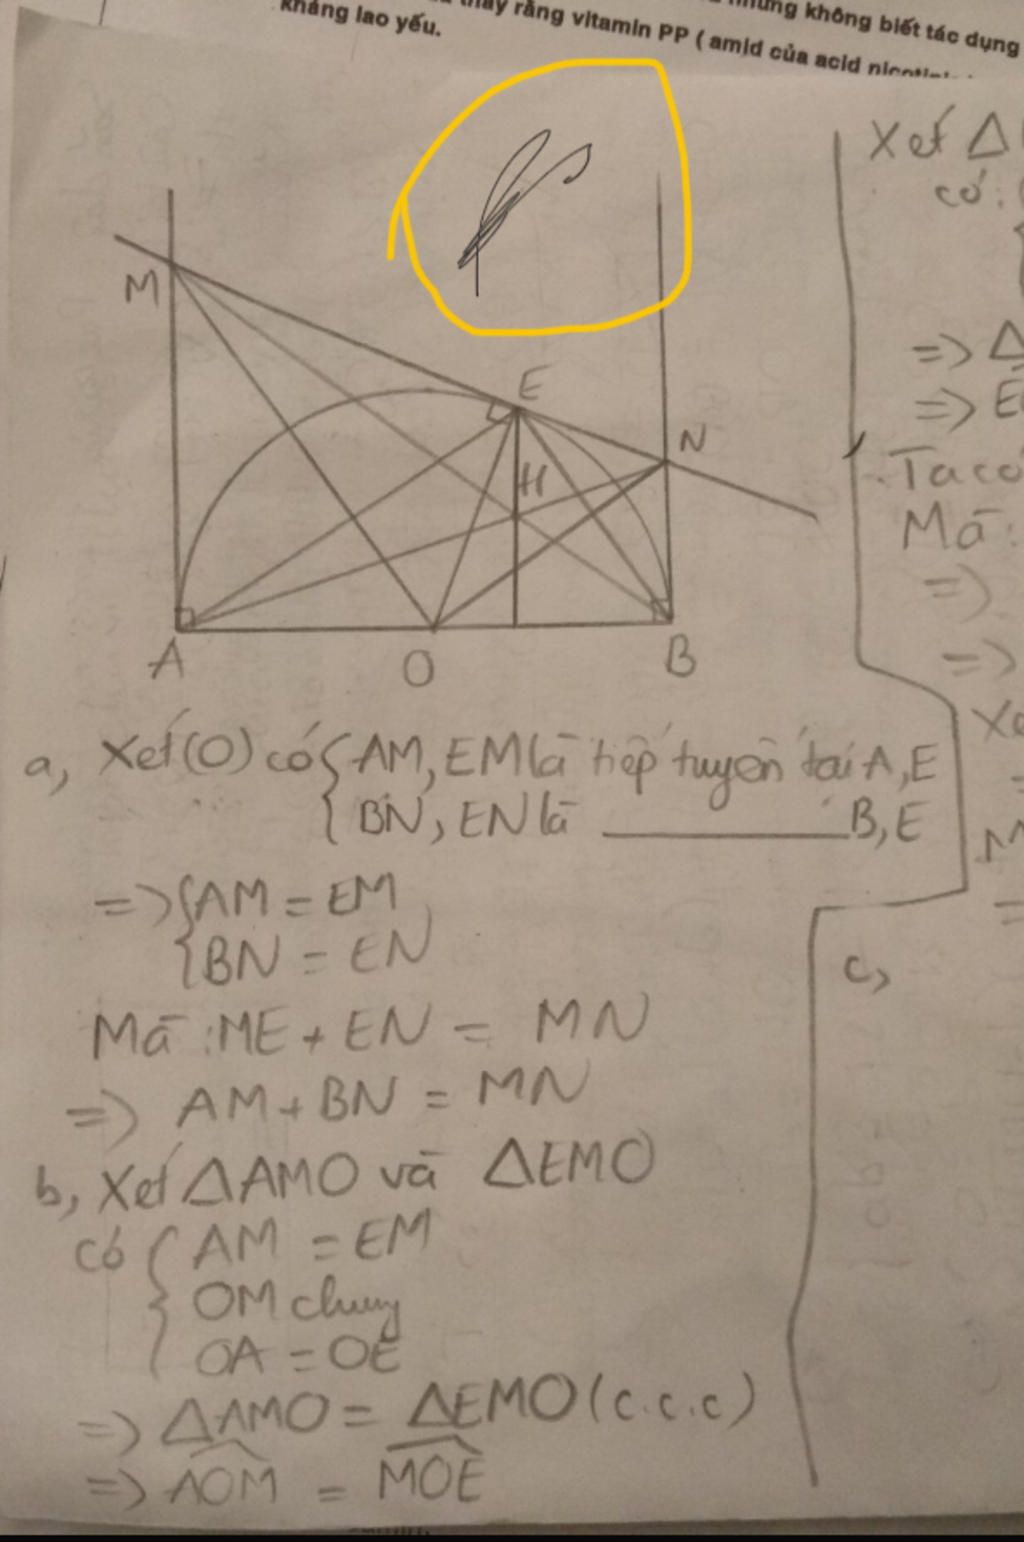 thấy rằng vitamin PP ( amid của acid
những không biết tác dụng
kháng lao yếu.
M
E
N
H
A
O
B
a, Xét (O) có { AM, EM là tiếp tuyến tại A, E
{ BN, EN là ________ B, E
=> { AM = EM
{ BN = EN
Mà : ME + EN = MN
=> AM + BN = MN
b, Xét ΔAMO và ΔEMO
có { AM = EM
OM chung
OA = OE
=> ΔAMO = ΔEMO (c.c.c)
=> AOM = MOE
Xét Δ
có :
=> Δ
=> E
Ta có
Mà :
=>
=>
c,